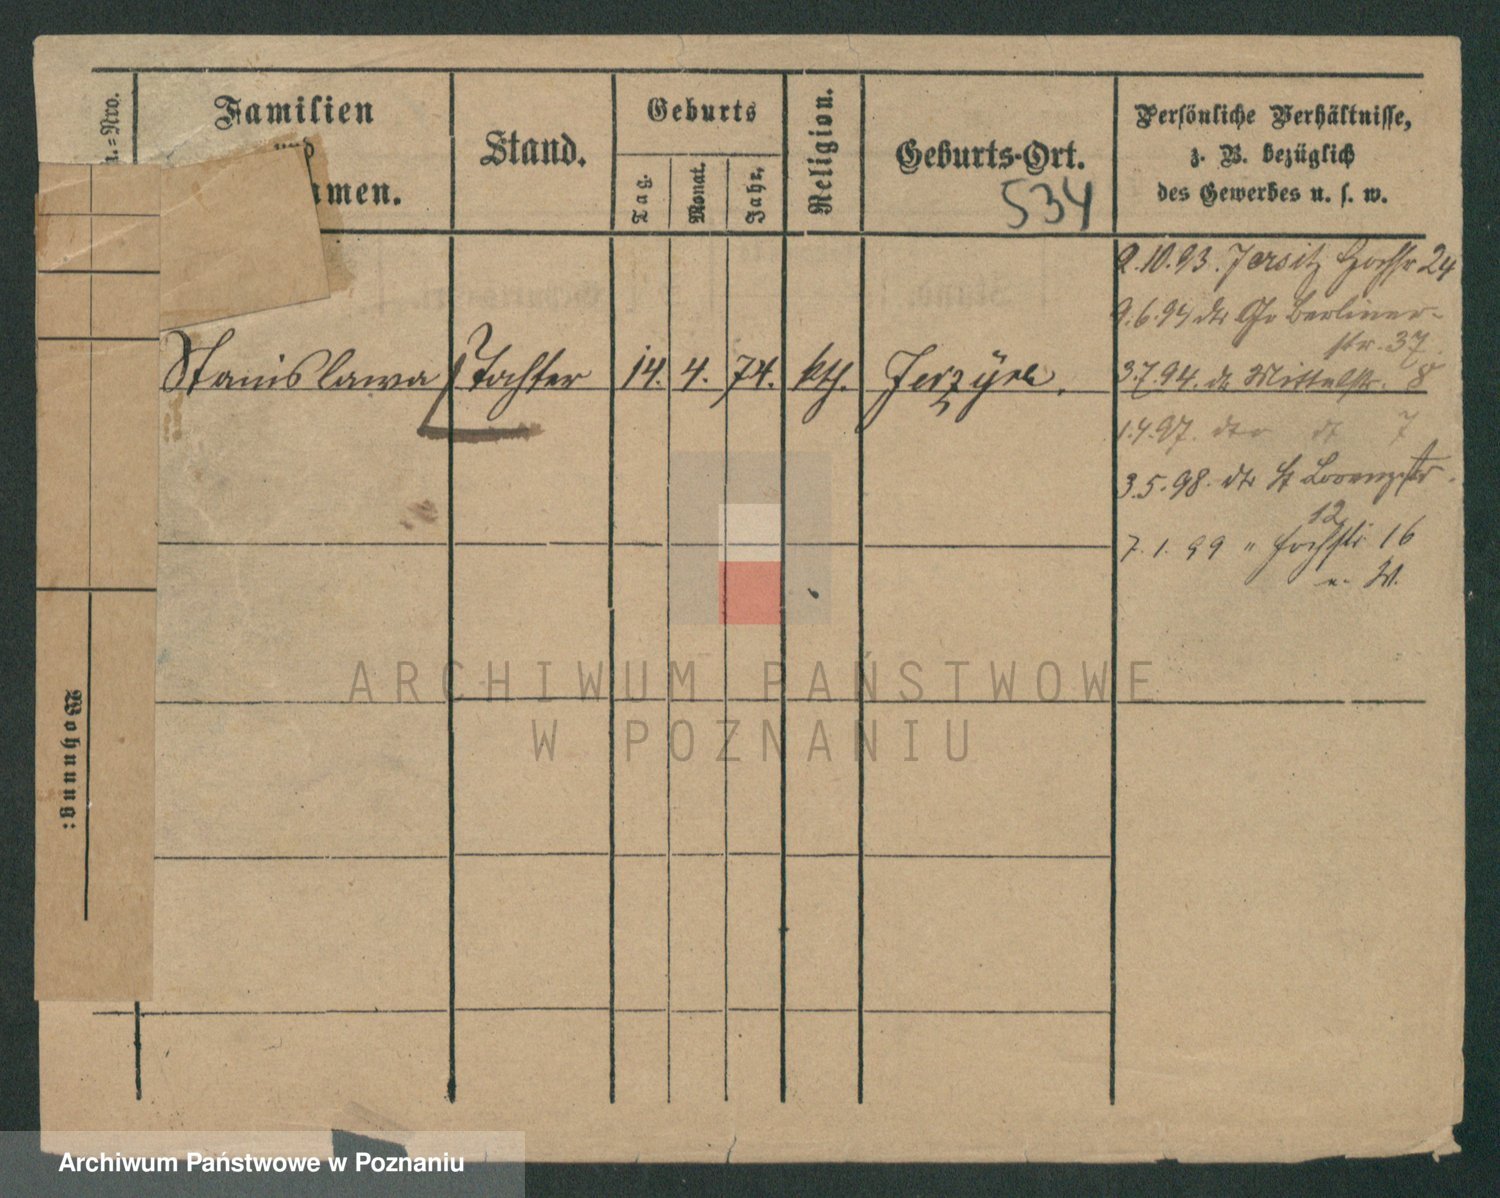 n.=Nro.
Familien
und
men.
Stand.
Geburts
Tag.
Monat.
Jahr.
Religion.
Geburts-Ort.
534
Persönliche Verhältnisse,
z. B. bezüglich
des Gewerbes u. s. w.
Stanislawa Tochter 14. 4. 74. kth. Jerzyce.
9.10.93. Jersitz 24
9.6.94 dto Gr Berliner-
str. 37
3.7.94. do Mittelstr. 8
1.4.97. dto 7
3.5.98. dto St Lorenzstr.
12
7. 1. 99 " Hochstr 16
u. W.
Wohnung:
ARCHIWUM PAŃSTWOWE
W POZNANIU
Archiwum Państwowe w Poznaniu